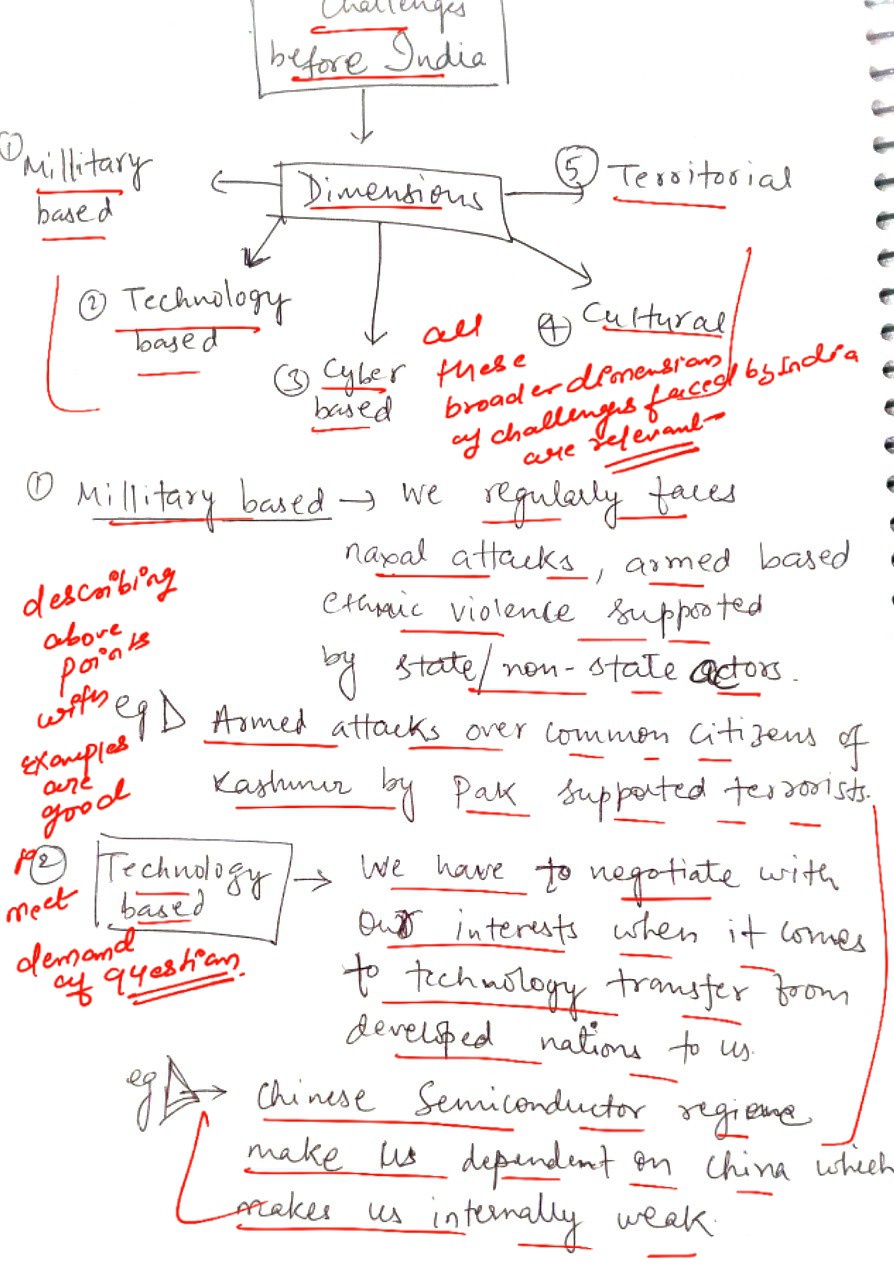 Challenges
before India
① Millitary
based
Dimensions
⑤ Territorial
② Technology
based
③ Cyber
based
④ Cultural
all
these
broader dimension
of challenges faced by India
are relevant
① Millitary based → We regularly faces
naxal attacks, armed based
ethnic violence supported
by state/non-state actors.
eg Armed attacks over common citizens of
Kashmir by Pak supported terrorists.
describing
above
points
with
examples
are
good
to
meet
demand
of question.
② Technology
based → We have to negotiate with
our interests when it comes
to technology transfer from
developed nations to us.
eg → Chinese Semiconductor regime
make us dependent on China which
makes us internally weak.